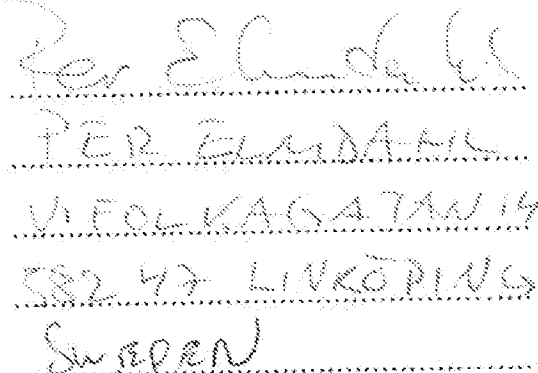 Per Elmdahl
PER ELMDAHL
VIFOLKAGATAN 14
582 47 LINKÖPING
SWEDEN